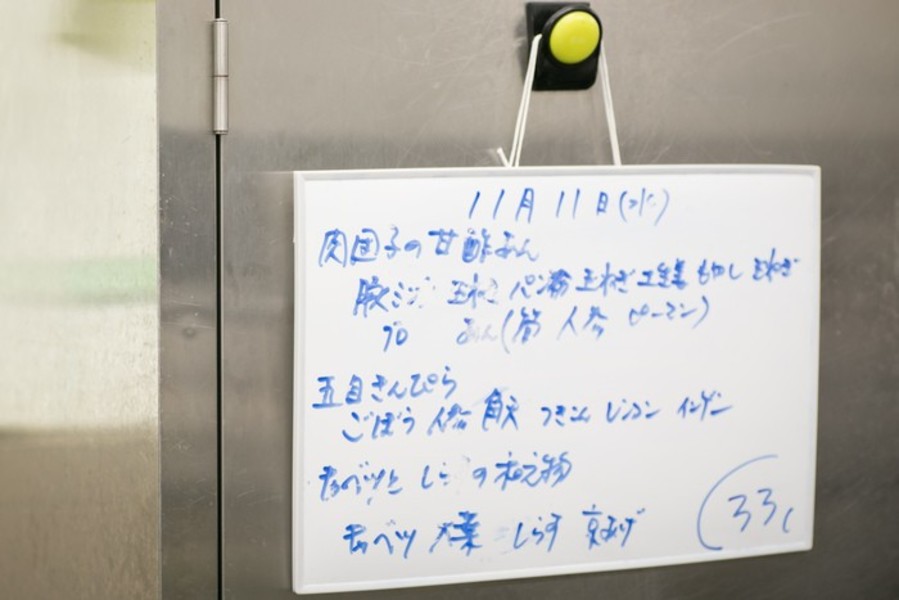 11月11日(水)
肉団子の甘酢あん
豚ミン 玉ねぎ パン粉 玉ねぎ もやし 玉ねぎ
70 あん(筍 人参 ピーマン)
五目きんぴら
ごぼう 人参 角天 つきこん レンコン インゲン
キャベツと しら の和え物
キャベツ 大葉 しらす 京あげ
33